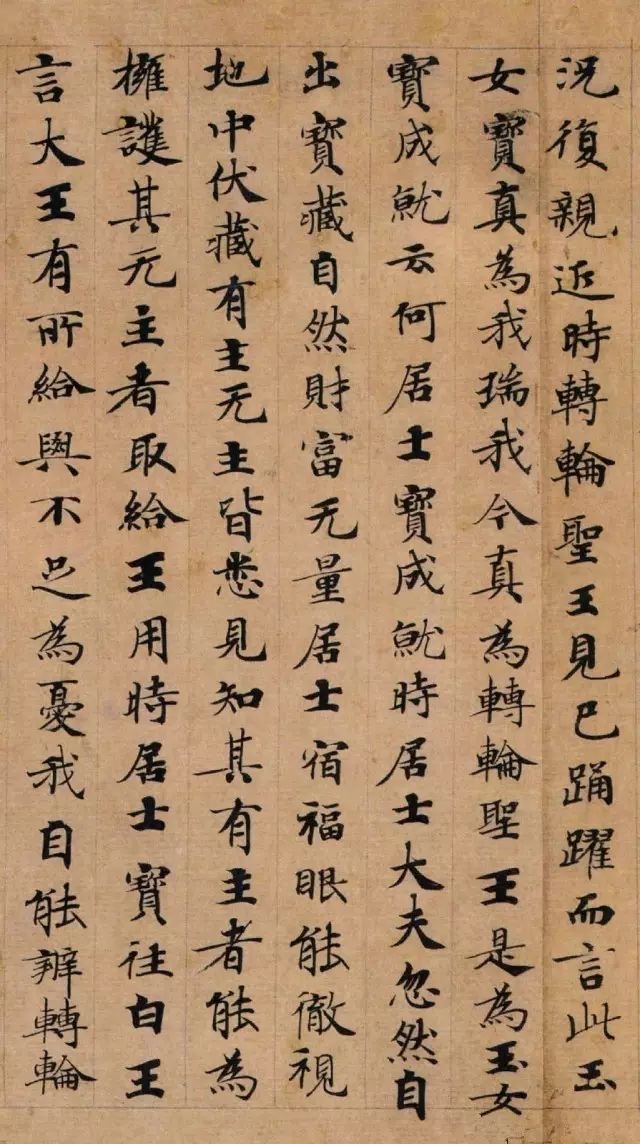 況復親近時轉輪聖王見已踊躍而言此玉
女寶真為我瑞我今真為轉輪聖王是為玉女
寶成就云何居士寶成就時居士大夫忽然自
出寶藏自然財富无量居士宿福眼能徹視
地中伏藏有主无主皆悉見知其有主者能為
擁護其无主者取給王用時居士寶往白王
言大王有所給與不足為憂我自能辦轉輪